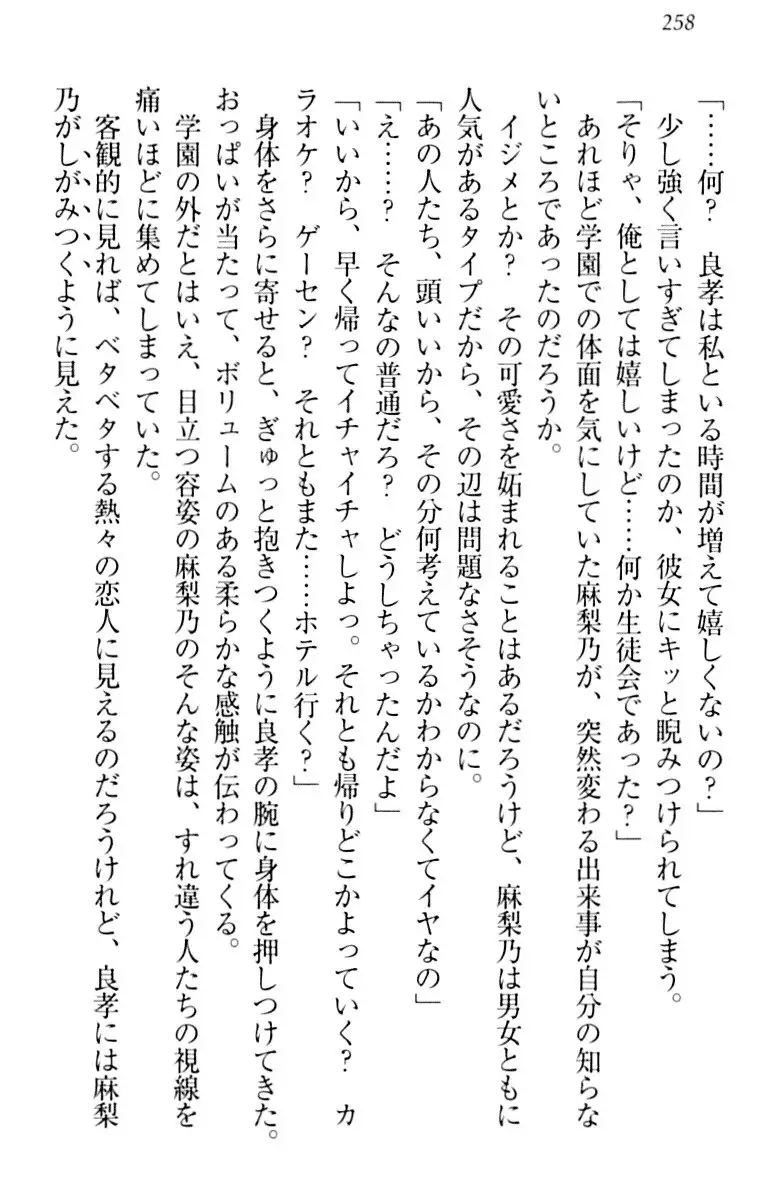 258
「……何？　良孝は私といる時間が増えて嬉しくないの？」
少し強く言いすぎてしまったのか、彼女にキッと睨みつけられてしまう。
「そりゃ、俺としては嬉しいけど……何か生徒会であった？」
あれほど学園での体面を気にしていた麻梨乃が、突然変わる出来事が自分の知らな
いところであったのだろうか。
イジメとか？　その可愛さを妬まれることはあるだろうけど、麻梨乃は男女ともに
人気があるタイプだから、その辺は問題なさそうなのに。
「あの人たち、頭いいから、その分何考えているかわからなくてイヤなの」
「え……？　そんなの普通だろ？　どうしちゃったんだよ」
「いいから、早く帰ってイチャイチャしよっ。それとも帰りどこかよっていく？　カ
ラオケ？　ゲーセン？　それともまた……ホテル行く？」
身体をさらに寄せると、ぎゅっと抱きつくように良孝の腕に身体を押しつけてきた。
おっぱいが当たって、ボリュームのある柔らかな感触が伝わってくる。
学園の外だとはいえ、目立つ容姿の麻梨乃のそんな姿は、すれ違う人たちの視線を
痛いほどに集めてしまっていた。
客観的に見れば、ベタベタする熱々の恋人に見えるのだろうけれど、良孝には麻梨
乃がしがみつくように見えた。